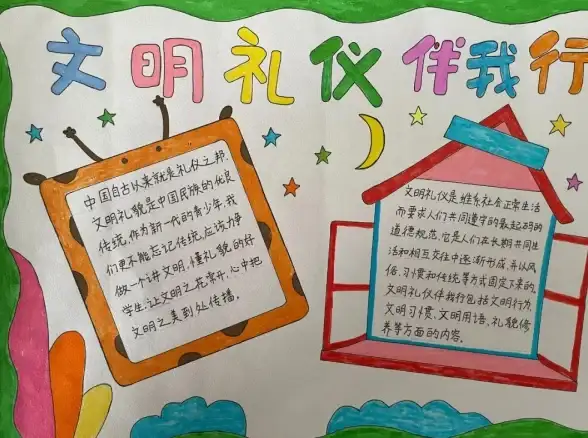 文明礼仪伴我行
中国自古以来就是礼仪之邦,
文明礼貌是中国民族的优良
传统,作为新一代的青少年,我
们更不能忘记传统,应该力争
做一个讲文明、懂礼貌的好
学生,让文明之花常开,心中把
文明之美到处传播。
文明礼仪是维系社会正常生活
而要求人们共同遵守的最起码的
道德规范,它是人们在长期共同生
活和相互交往中逐渐形成,并以风
俗、习惯和传统等方式固定下来的。
文明礼仪伴我行包括文明行为、
文明习惯、文明用语、礼貌修
养等方面的内容。